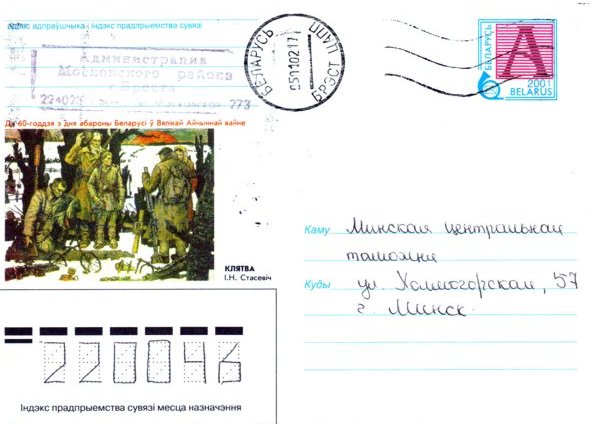 Індэкс адпраўшчыка і індэкс прадпрыемства сувязі
Администрация
Московского района
г. Бреста
224023 273
БЕЛАРУСЬ
БРЭСТ
БЕЛАРУСЬ
А
2001
BELARUS
Да 60-годдзя з дня абароны Беларусі ў Вялікай Айчыннай вайне
КЛЯТВА
І.Н. Стасевіч
Каму Минская центральная
таможня
Куды ул. Холмогорская, 57
г. Минск
220046
Індэкс прадпрыемства сувязі месца назначэння